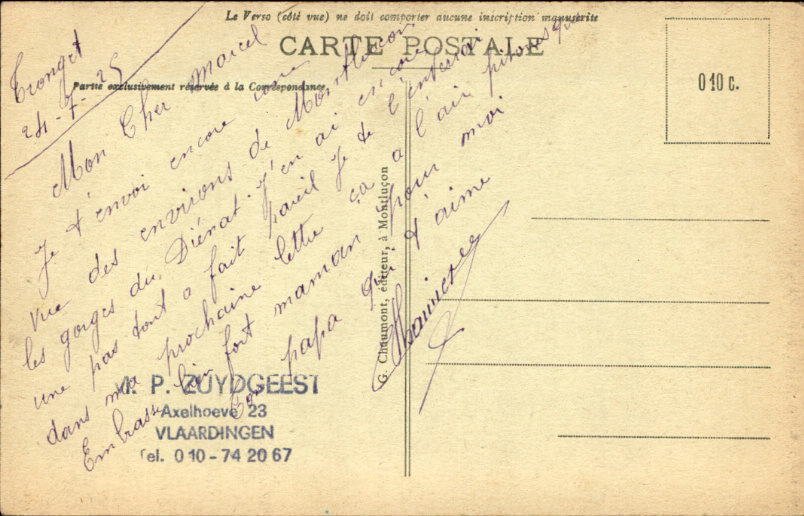 Le Verso (côté vue) ne doit comporter aucune inscription manuscrite
CARTE POSTALE
Partie exclusivement réservée à la Correspondance.
0 10 c.
Tronget
24-7-25
Mon Cher Marcel
Je t'envoi encore une
vue des environs de Montluçon
les gorges du Diénat. J'en ai encore
une pas tout a fait pareil je te l'enverrai
dans ma prochaine lettre ça a l'air pitoresque
Embrasse bien fort maman pour moi
Ton papa qui t'aime
G. Chaumont, éditeur, à Montluçon
M. P. ZUYDGEEST
Axelhoeve 23
VLAARDINGEN
Tel. 0 10 - 74 20 67